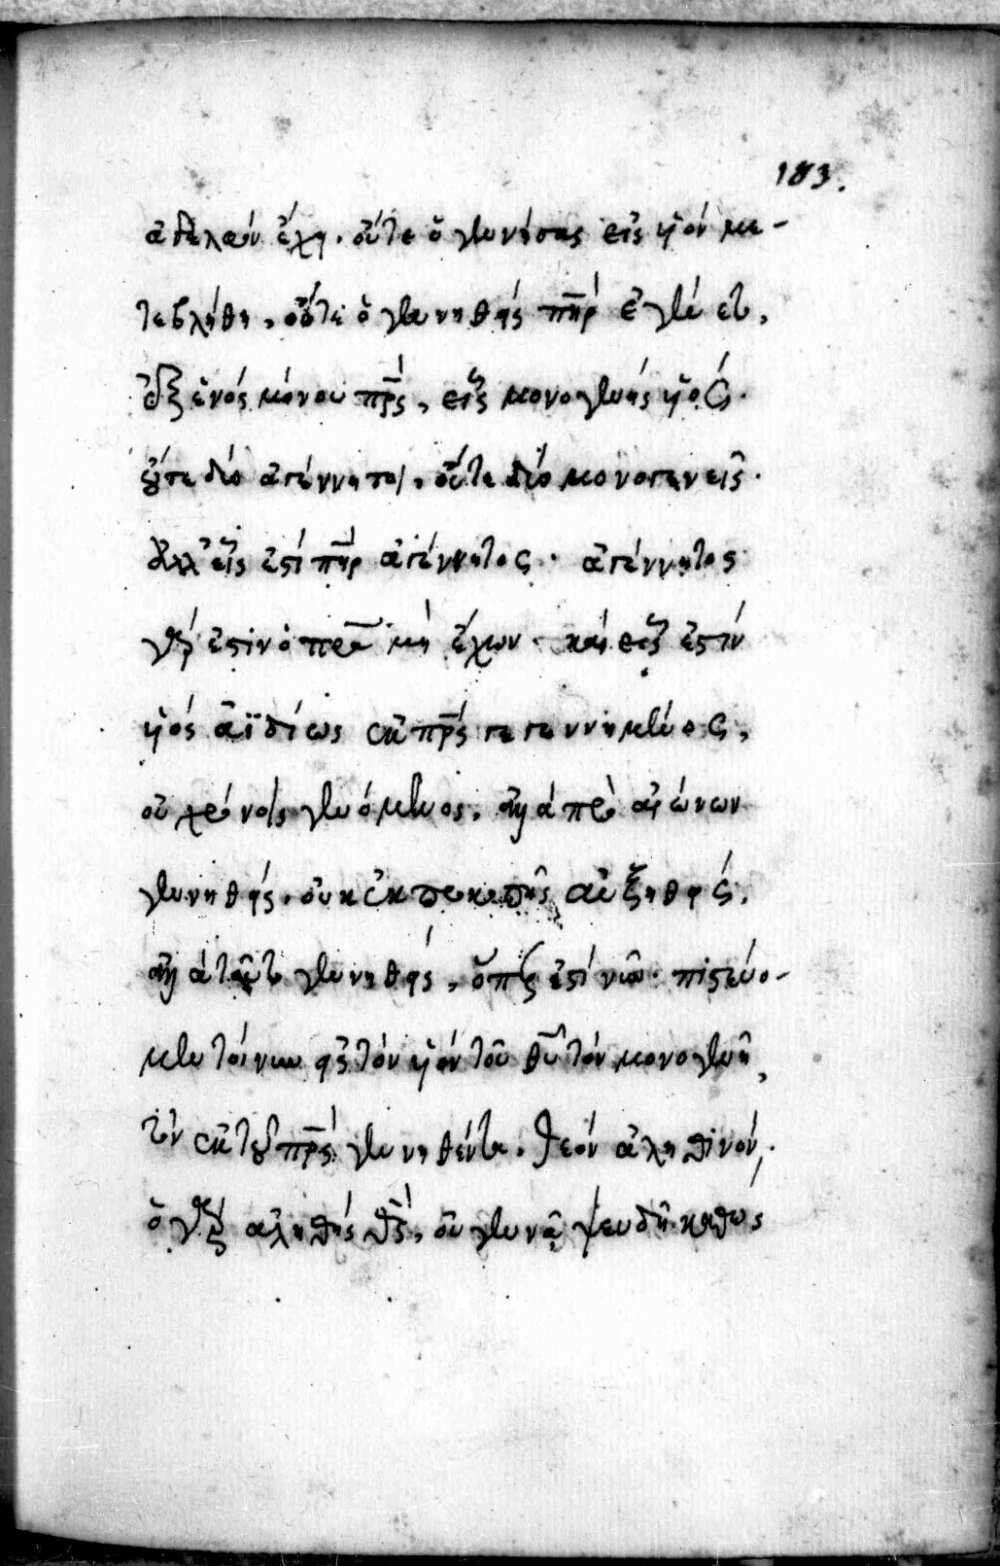 183.
ἀδελφὸν ἔχη. οὔτε ὁ γεννήσας εἰς υἱὸν με-
τεβλήθη, οὔτε ὁ γεννηθεὶς πηρ ἐγένετο,
ἐξ ἑνὸς μόνου πρς, εἷς μονογενὴς υἱός.
οὔτε δύο ἀγέννητοι, οὔτε δύο μονογενεῖς.
ἀλλ' εἷς ἐστὶ πηρ ἀγέννητος. ἀγέννητος
γάρ ἐστιν ὁ πρα μὴ ἔχων. καὶ εἷς ἐστὶν
υἱὸς ἀϊδίως ἐκ πρς γεγεννημένος,
οὐ χρόνοις γενόμενος, ἀλλὰ πρὸ αἰώνων
γεννηθείς, οὐκ ἐκ προκοπῆς αὐξηθείς.
ἀλλὰ τοῦτο γεννηθείς, ὅπερ ἐστὶ νῦν. πιστεύο-
μεν τοίνυν εἰς τὸν υἱὸν τοῦ θυ τὸν μονογενῆ,
τὸν ἐκ τοῦ πρς γεννηθέντα. θεὸν ἀληθινόν,
ὁ γὰρ ἀληθὴς θς, οὐ γεννᾷ ψευδῆ καθὼς